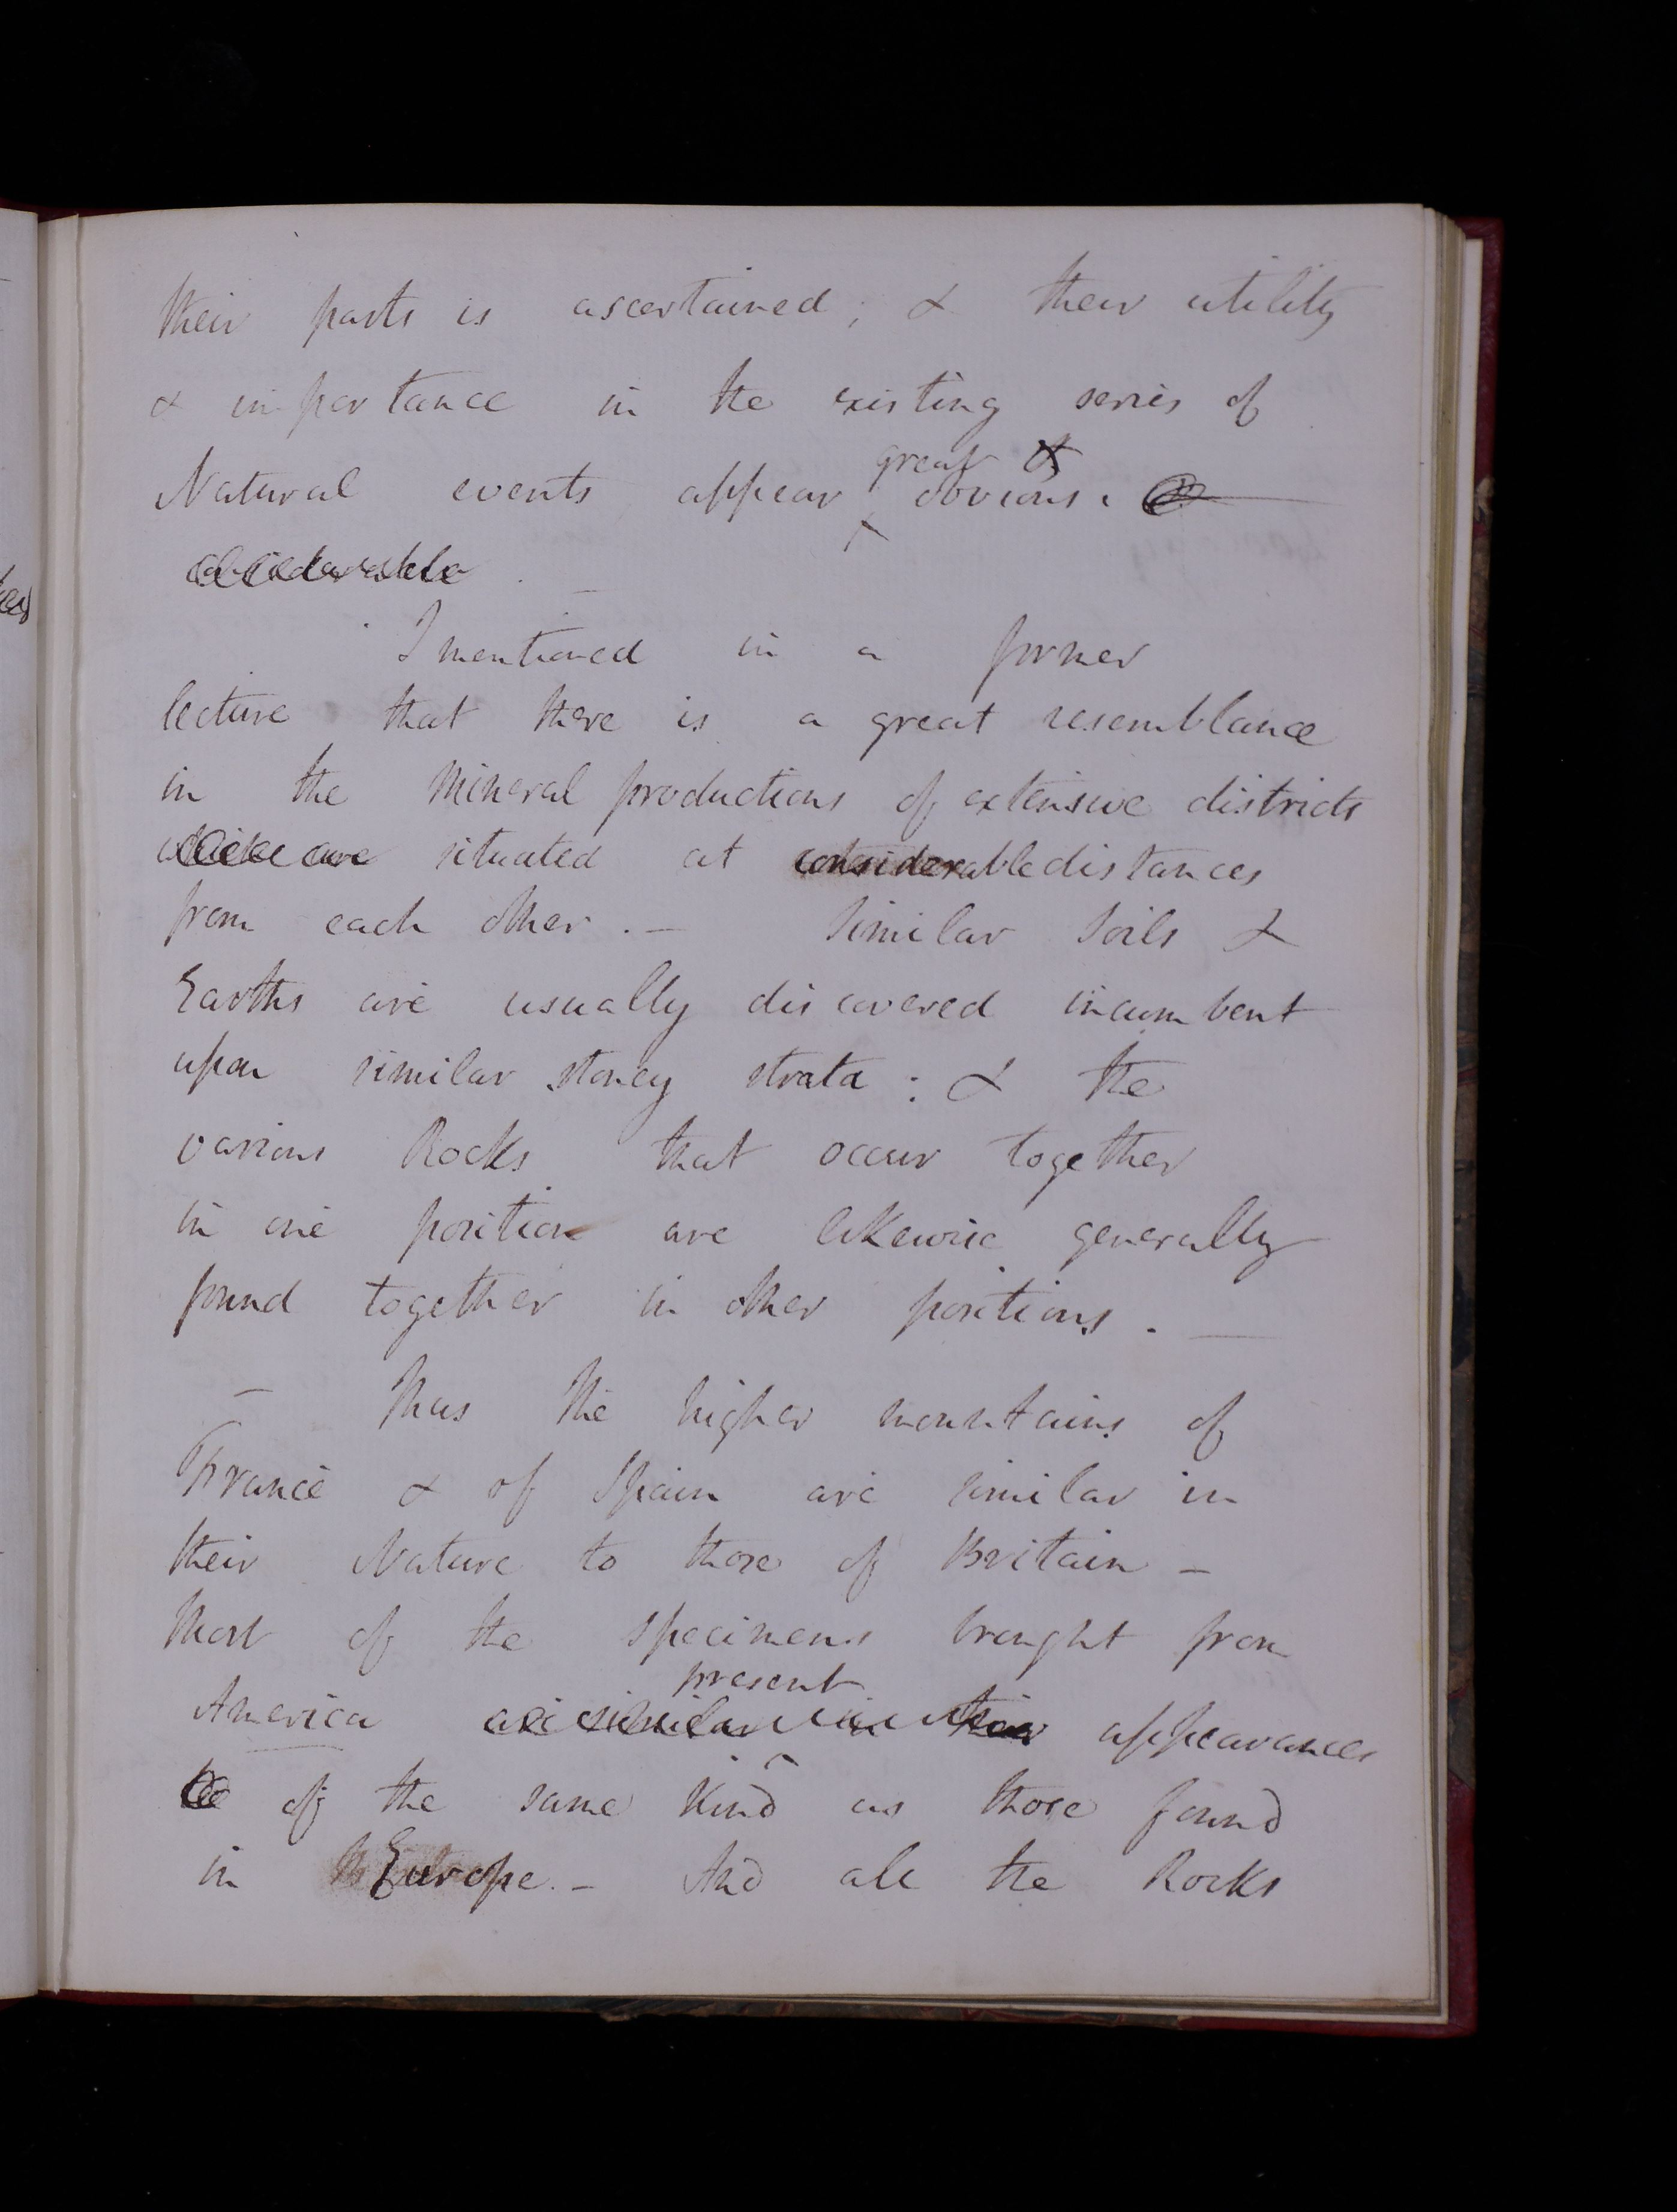 their parts is ascertained; & their utility
& importance in the existing series of
great &
Natural events appear obvious.
I mentioned in a former
lecture that there is a great resemblance
in the Mineral productions of extensive districts
which are situated at considerable distances
from each other. — Similar Soils &
Earths are usually discovered incumbent
upon similar stoney strata: & the
various Rocks that occur together
in one position are likewise generally
found together in other positions. —
— Thus the higher mountains of
France & of Spain are similar in
their Nature to those of Britain —
Most of the specimens brought from
present
America are similar in their appearances
of the same kind as those found
in Europe. — And all the Rocks